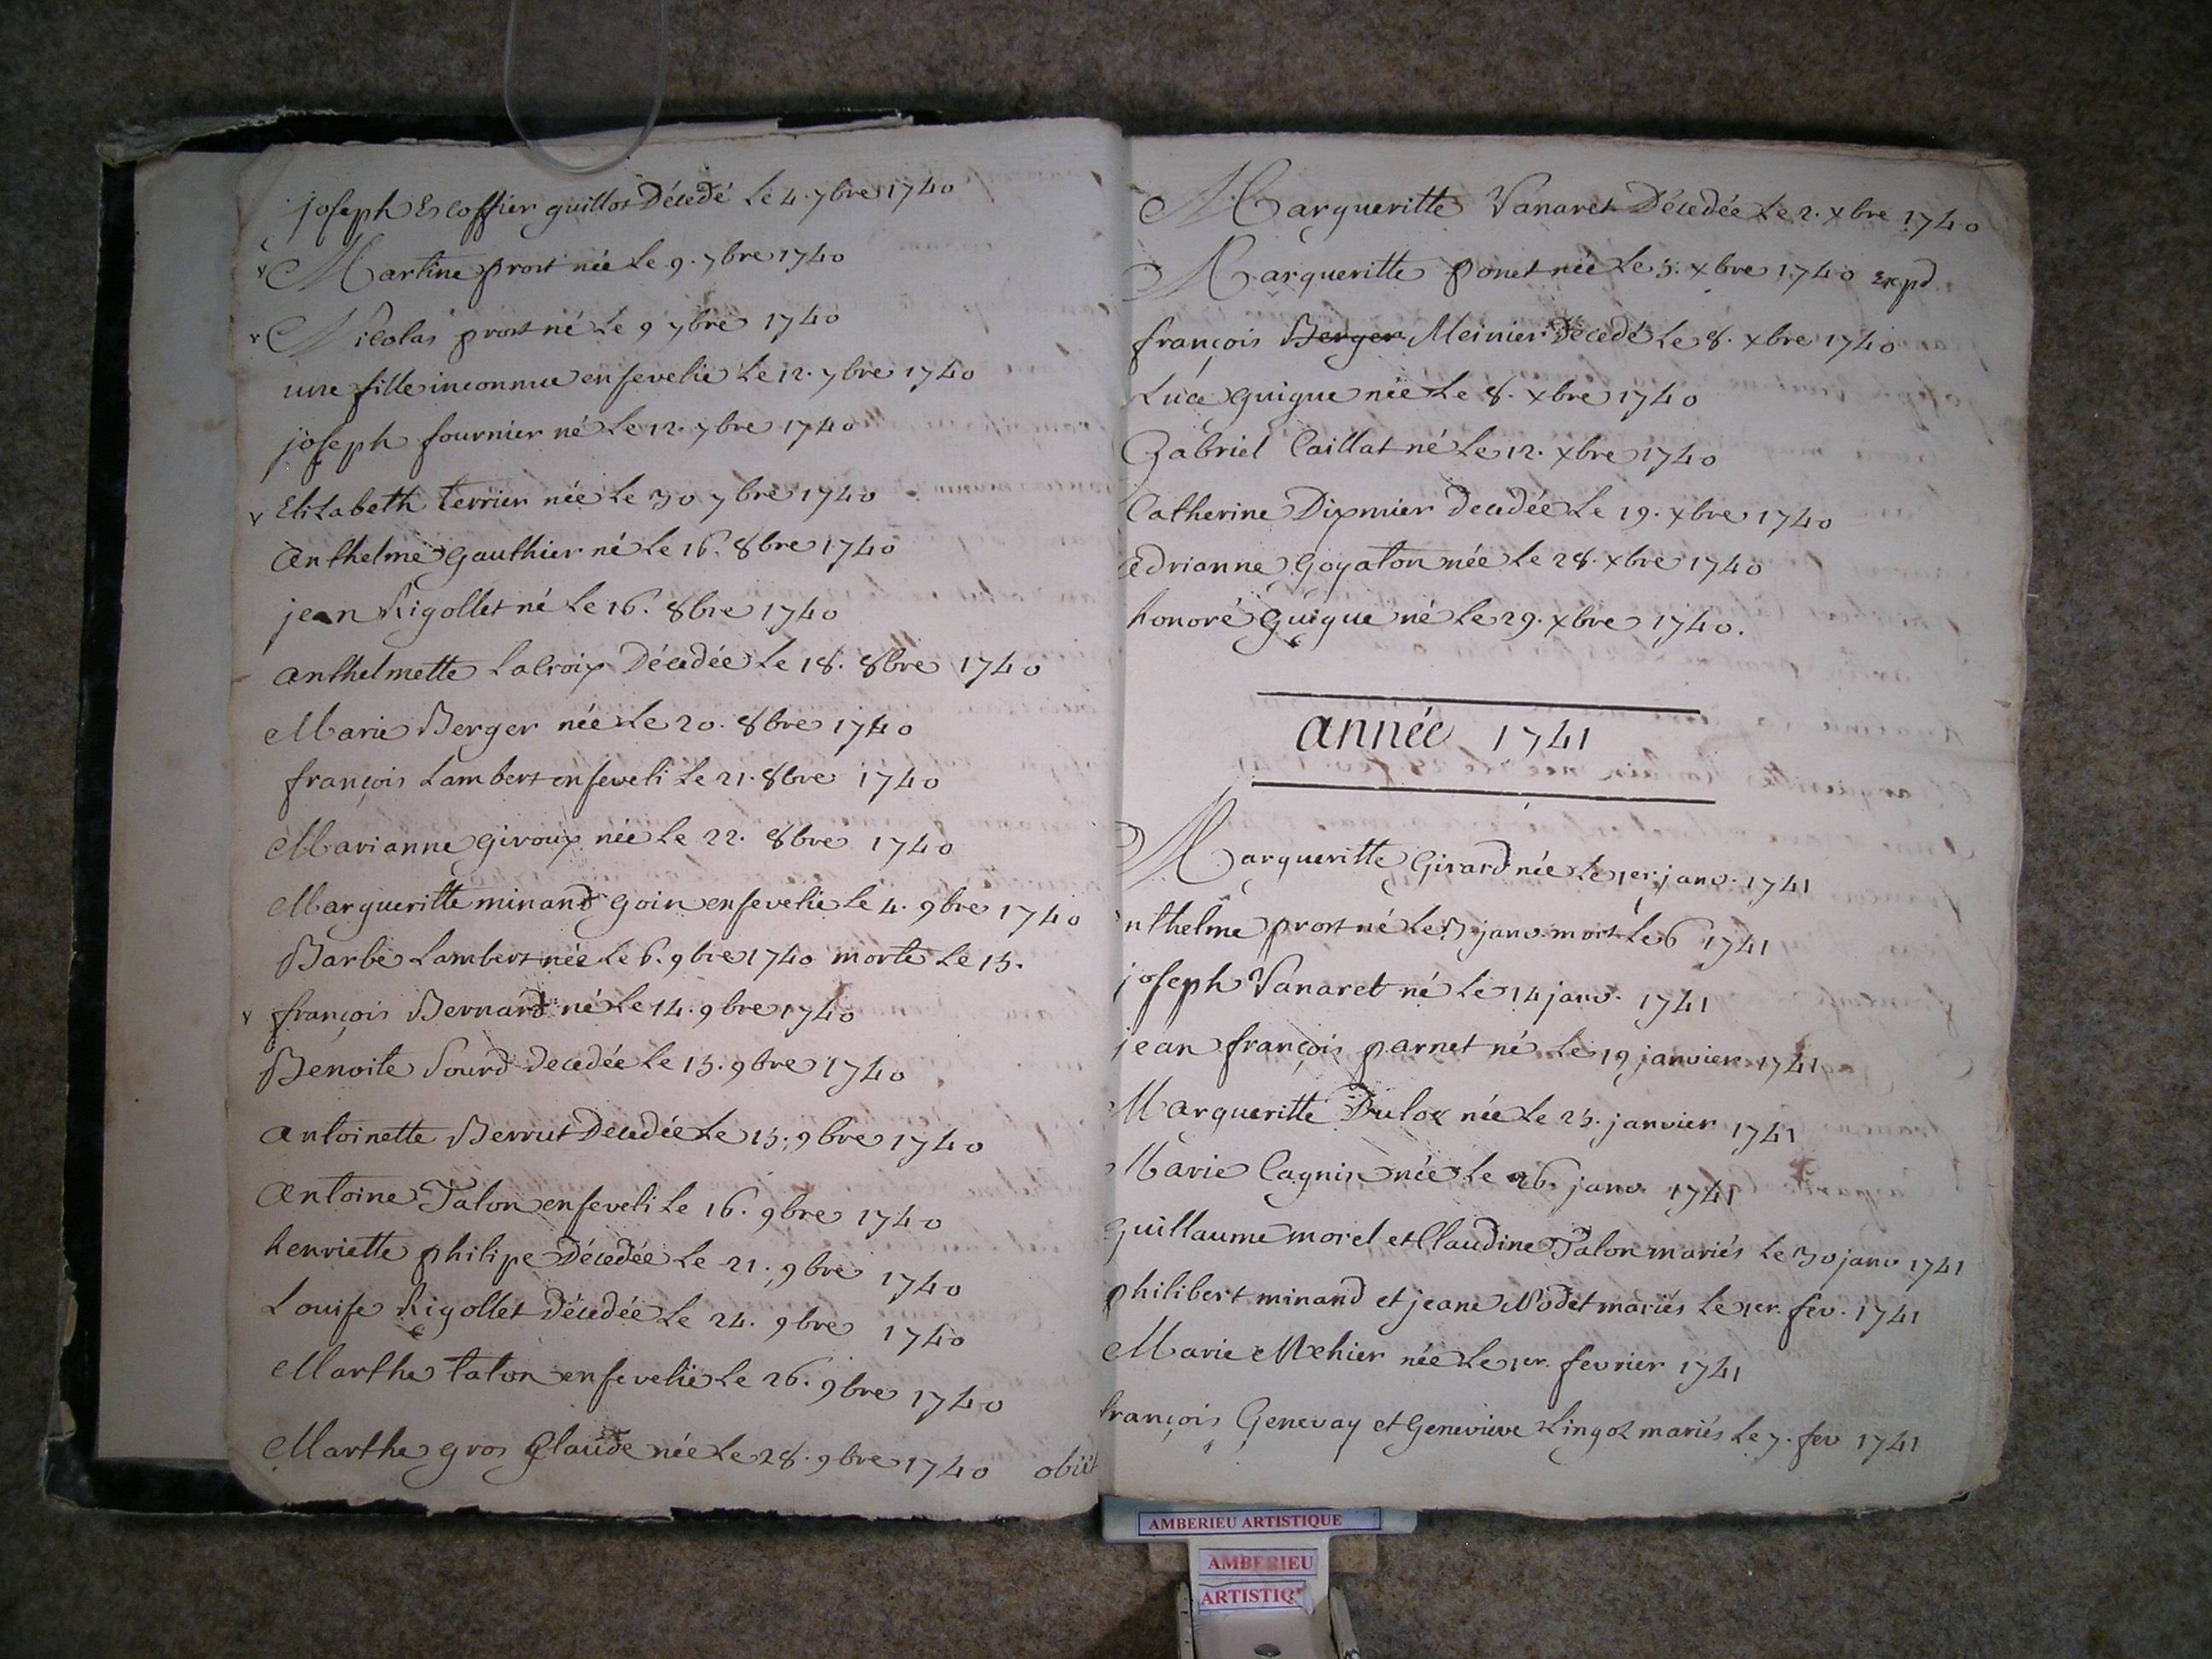 joseph Escoffier guillot Décedé le 4. 7bre 1740
Martine prost née le 9. 7bre 1740
Nicolas prost né le 9 7bre 1740
une fille inconnue ensevelie le 12. 7bre 1740
joseph fournier né le 12. 7bre 1740
Elizabeth terrier née le 30 7bre 1740
anthelme gauthier né le 16. 8bre 1740
jean Rigollet né le 16. 8bre 1740
anthelmette Lacroix Décedée le 18. 8bre 1740
Marie Berger née le 20. 8bre 1740
françois Lambert enseveli le 21. 8bre 1740
Marianne giroux née le 22. 8bre 1740
Margueritte minand goin ensevelie le 4. 9bre 1740
Barbe Lambert née le 6. 9bre 1740 morte le 15.
françois Bernard né le 14. 9bre 1740
Benoite Sourd decedée le 15. 9bre 1740
antoinette Berrut Decedée le 15. 9bre 1740
antoine Talon enseveli le 16. 9bre 1740
henriette philipe Décedée le 21. 9bre 1740
Louise Rigollet Décedée le 24. 9bre 1740
Marthe talon ensevelie le 26. 9bre 1740
Marthe gros Claude née le 28. 9bre 1740 obiit
Margueritte Vanaret Décedée le 2. xbre 1740
Margueritte ponet née le 5. xbre 1740 Expd
françois Berger Meinier Décedé le 8. xbre 1740
Luce guigue née le 8. xbre 1740
Gabriel Caillat né le 12. xbre 1740
Catherine Dixmier decedée le 19. xbre 1740
adrianne goyaton née le 28. xbre 1740
honoré guigue né le 29. xbre 1740.
année 1741
Margueritte Girard née le 1er. janv. 1741
anthelme prost né le 5 janv. mort le 6 1741
joseph Vanaret né le 14 janv. 1741
jean françois parnet né le 19 janvier 1741
Margueritte Duloz née le 25. janvier 1741
Marie Cagnin née le 26. janv. 1741
guillaume morel et Claudine Talon mariés le 30 janv 1741
philibert minand et jeane Nodet mariés le 1er. fev. 1741
Marie née le 1er. fevrier 1741
françois Genevay et Genevieve Lingoz mariés le 7. fev 1741
AMBERIEU ARTISTIQUE
AMBERIEU
ARTISTIQ